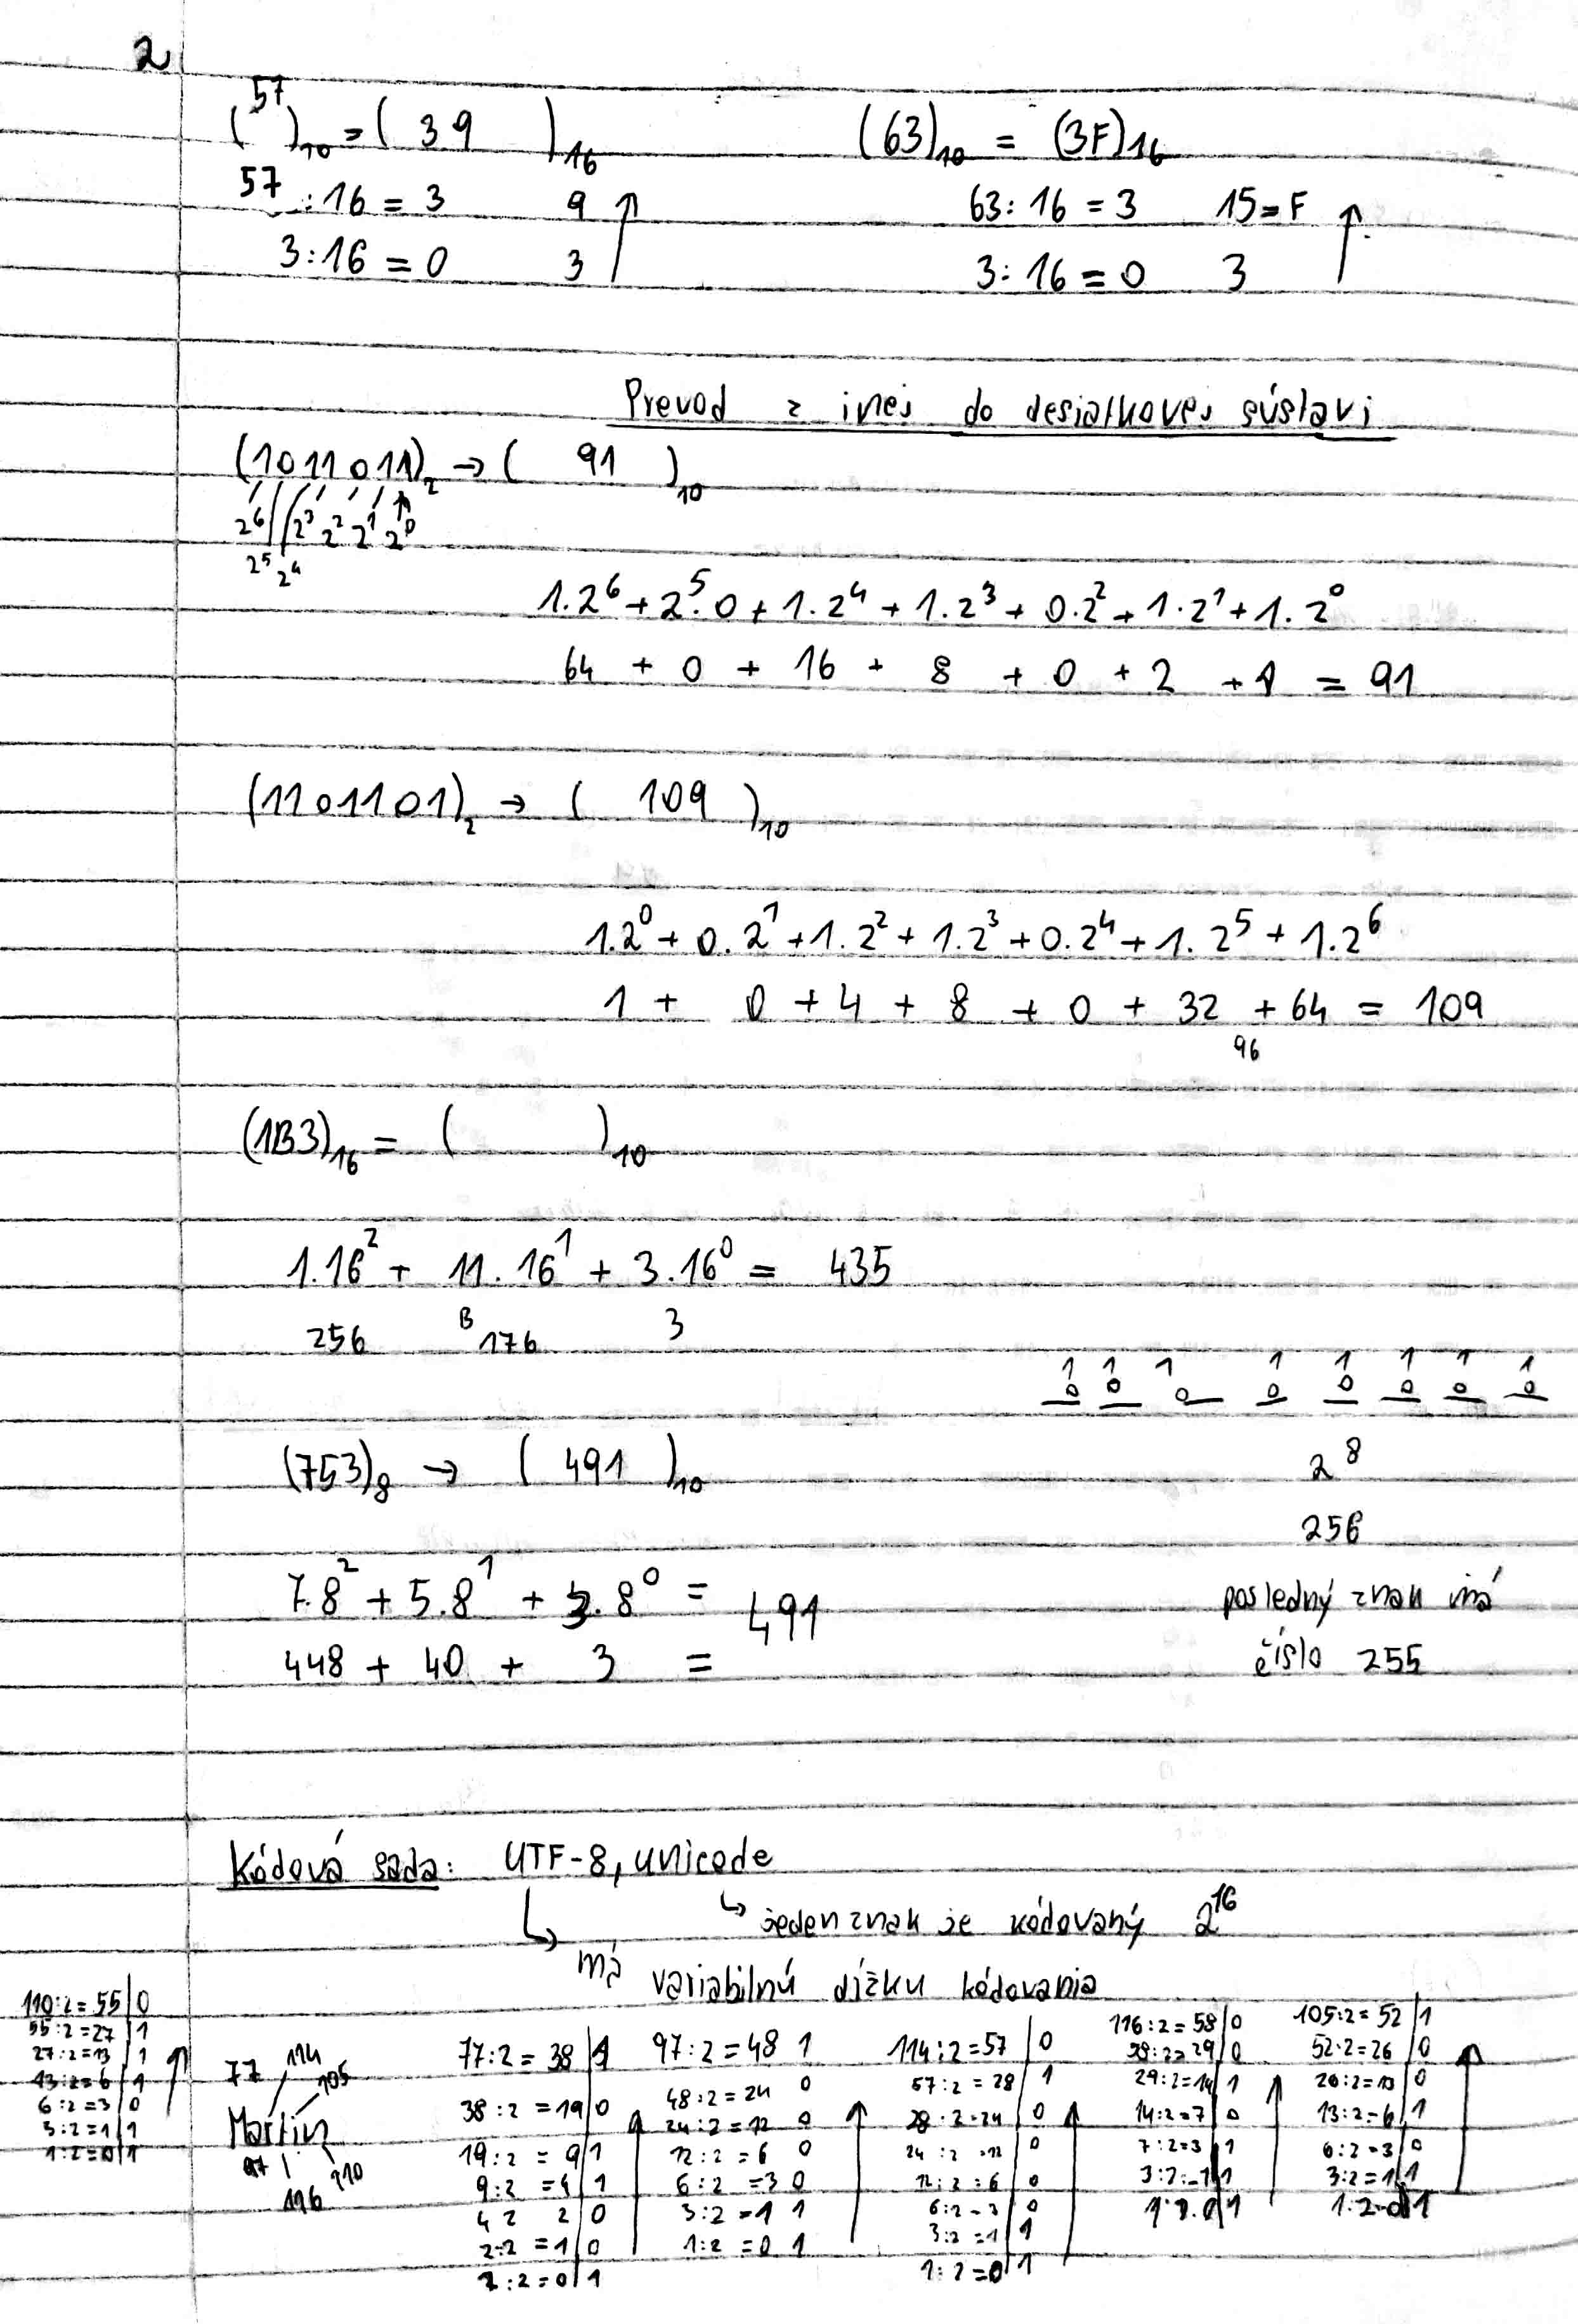 2
(57)₁₀ = ( 39 )₁₆
57 : 16 = 3 9
3 : 16 = 0 3
(63)₁₀ = (3F)₁₆
63 : 16 = 3 15 = F
3 : 16 = 0 3
Prevod z inej do desiatkovej sústavi
(1011011)₂ → ( 91 )₁₀
2⁶ 2³ 2² 2¹ 2⁰
2⁵ 2⁴
1.2⁶ + 2⁵.0 + 1.2⁴ + 1.2³ + 0.2² + 1.2¹ + 1.2⁰
64 + 0 + 16 + 8 + 0 + 2 + 1 = 91
(1101101)₂ → ( 109 )₁₀
1.2⁰ + 0.2¹ + 1.2² + 1.2³ + 0.2⁴ + 1.2⁵ + 1.2⁶
1 + 0 + 4 + 8 + 0 + 32 + 64 = 109
96
(1B3)₁₆ = ( )₁₀
1.16² + 11.16¹ + 3.16⁰ = 435
256 B 176 3
1 1 1 1 1 1 1 1
0 0 0 0 0 0 0 0
2⁸
256
posledný znak má
číslo 255
(753)₈ → ( 491 )₁₀
7.8² + 5.8¹ + 3.8⁰ = 491
448 + 40 + 3 =
Kódová sada: UTF-8, unicode
↳ jeden znak je kódovaný 2¹⁶
↳ má variabilnú dĺžku kódovania
110:2=55|0
55:2=27|1
27:2=13|1
13:2=6|1
6:2=3|0
3:2=1|1
1:2=0|1
77 114 105
Martin
97 116 110
77:2=38|1
38:2=19|0
19:2=9|1
9:2=4|1
4 2 2|0
2:2=1|0
1:2=0|1
97:2=48 1
48:2=24 0
24:2=12 0
12:2=6 0
6:2=3 0
3:2=1 1
1:2=0 1
114:2=57|0
57:2=28|1
28:2=24|0
24:2=12|0
12:2=6|0
6:2=3|0
3:2=1|1
1:2=0|1
116:2=58|0
58:2=29|0
29:2=14|1
14:2=7|0
7:2=3|1
3:2=1|1
1:2=0|1
105:2=52|1
52:2=26|0
26:2=13|0
13:2=6|1
6:2=3|0
3:2=1|1
1:2=0|1